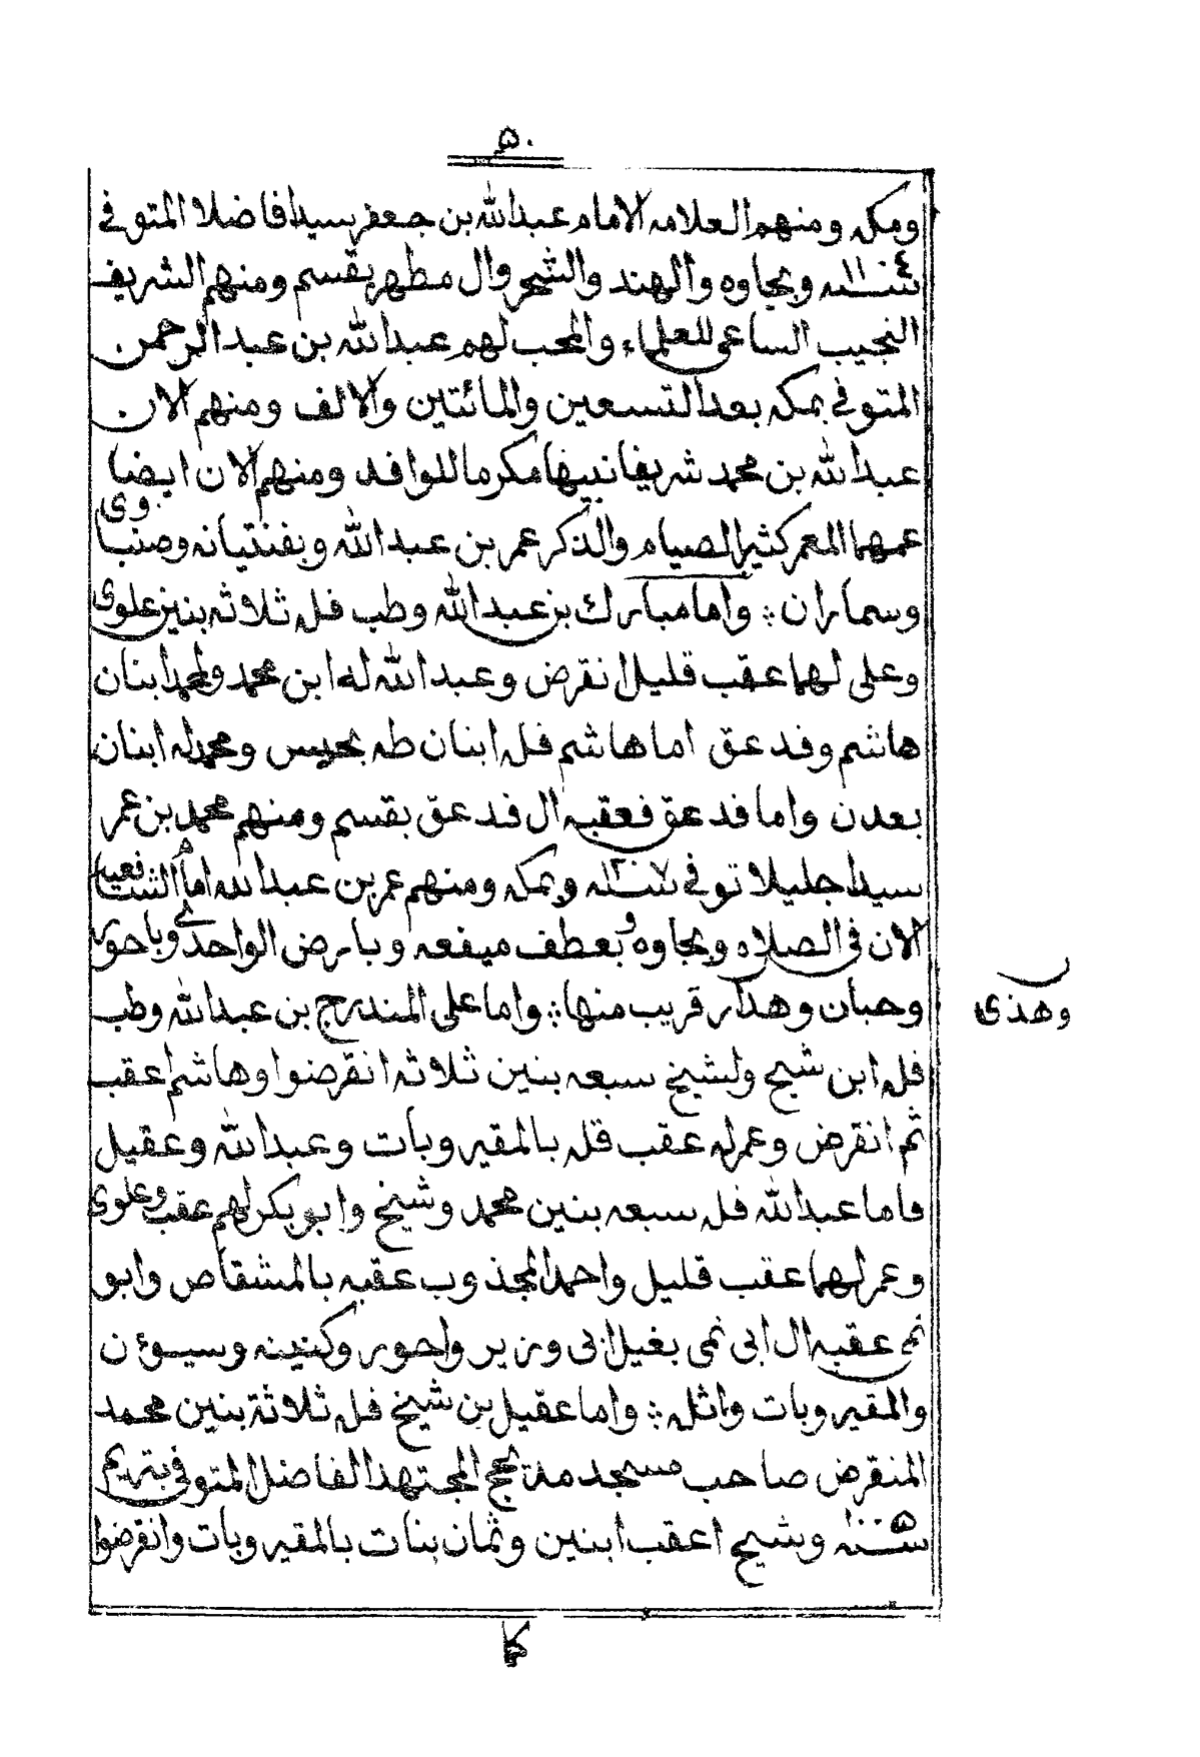 ٥٠
ومكه ومنهم العلامه الامام عبدالله بن جعفر سيدا فاضلا المتوفى
سنه ١١٠٤ وبجاوه والهند والشحر وال مطهر بقسم ومنهم الشريف
النجيب الساعى للعلماء والمحب لهم عبدالله بن عبدالرحمن
المتوفى بمكه بعد التسعين والمائتين والالف ومنهم الان
عبدالله بن محمد شريفا نبيها مكرما للوافد ومنهم الان ايضا
عمهما المعمر كثير الصيام والذكر عمر بن عبدالله وبفنتيانه وصنبا
وسماران ؞ واما مبارك بن عبدالله وطب فله ثلاثه بنين علوى
وعلى لهما عقب قليل انقرض وعبدالله له ابن محمد ولمحمد ابنان
هاشم وفدعق اما هاشم فله ابنان طه بحيس ومحمد له ابنان
بعدن واما فدعق فعقبه ال فدعق بقسم ومنهم محمد بن عمر
سيدا جليلا توفى سنه ١٢٠٧ وبمكه ومنهم عمر بن عبدالله امام الشافعيه
الان فى الصلاه وبجاوه وبعطف ميفعه وبارض الواحدى وباحوى
وحبان وهدار قريب منها ؞ واما على المندرج بن عبدالله وطب
وهذى
فله ابن شيخ ولشيخ سبعه بنين ثلاثه انقرضوا وهاشم اعقب
ثم انقرض وعمر له عقب قله بالمقيروبات وعبدالله وعقيل
فاما عبدالله فله سبعه بنين محمد وشيخ وابوبكر لهم عقب وعلوى
وعمر لهما عقب قليل واحمد المجذوب عقبه بالمشقاص وابو
نمى عقبه ال ابى نمى بغيل ابى وزير واحور وكنينه وسيوؤن
والمقيروبات واثله ؞ واما عقيل بن شيخ فله ثلاثة بنين محمد
المنقرض صاحب مسجد مدة بحج المجتهد الفاضل المتوفى بتريم
سنه ١٠٠٥ وشيخ اعقب ابنين وثمان بنات بالمقيروبات وانقرضوا